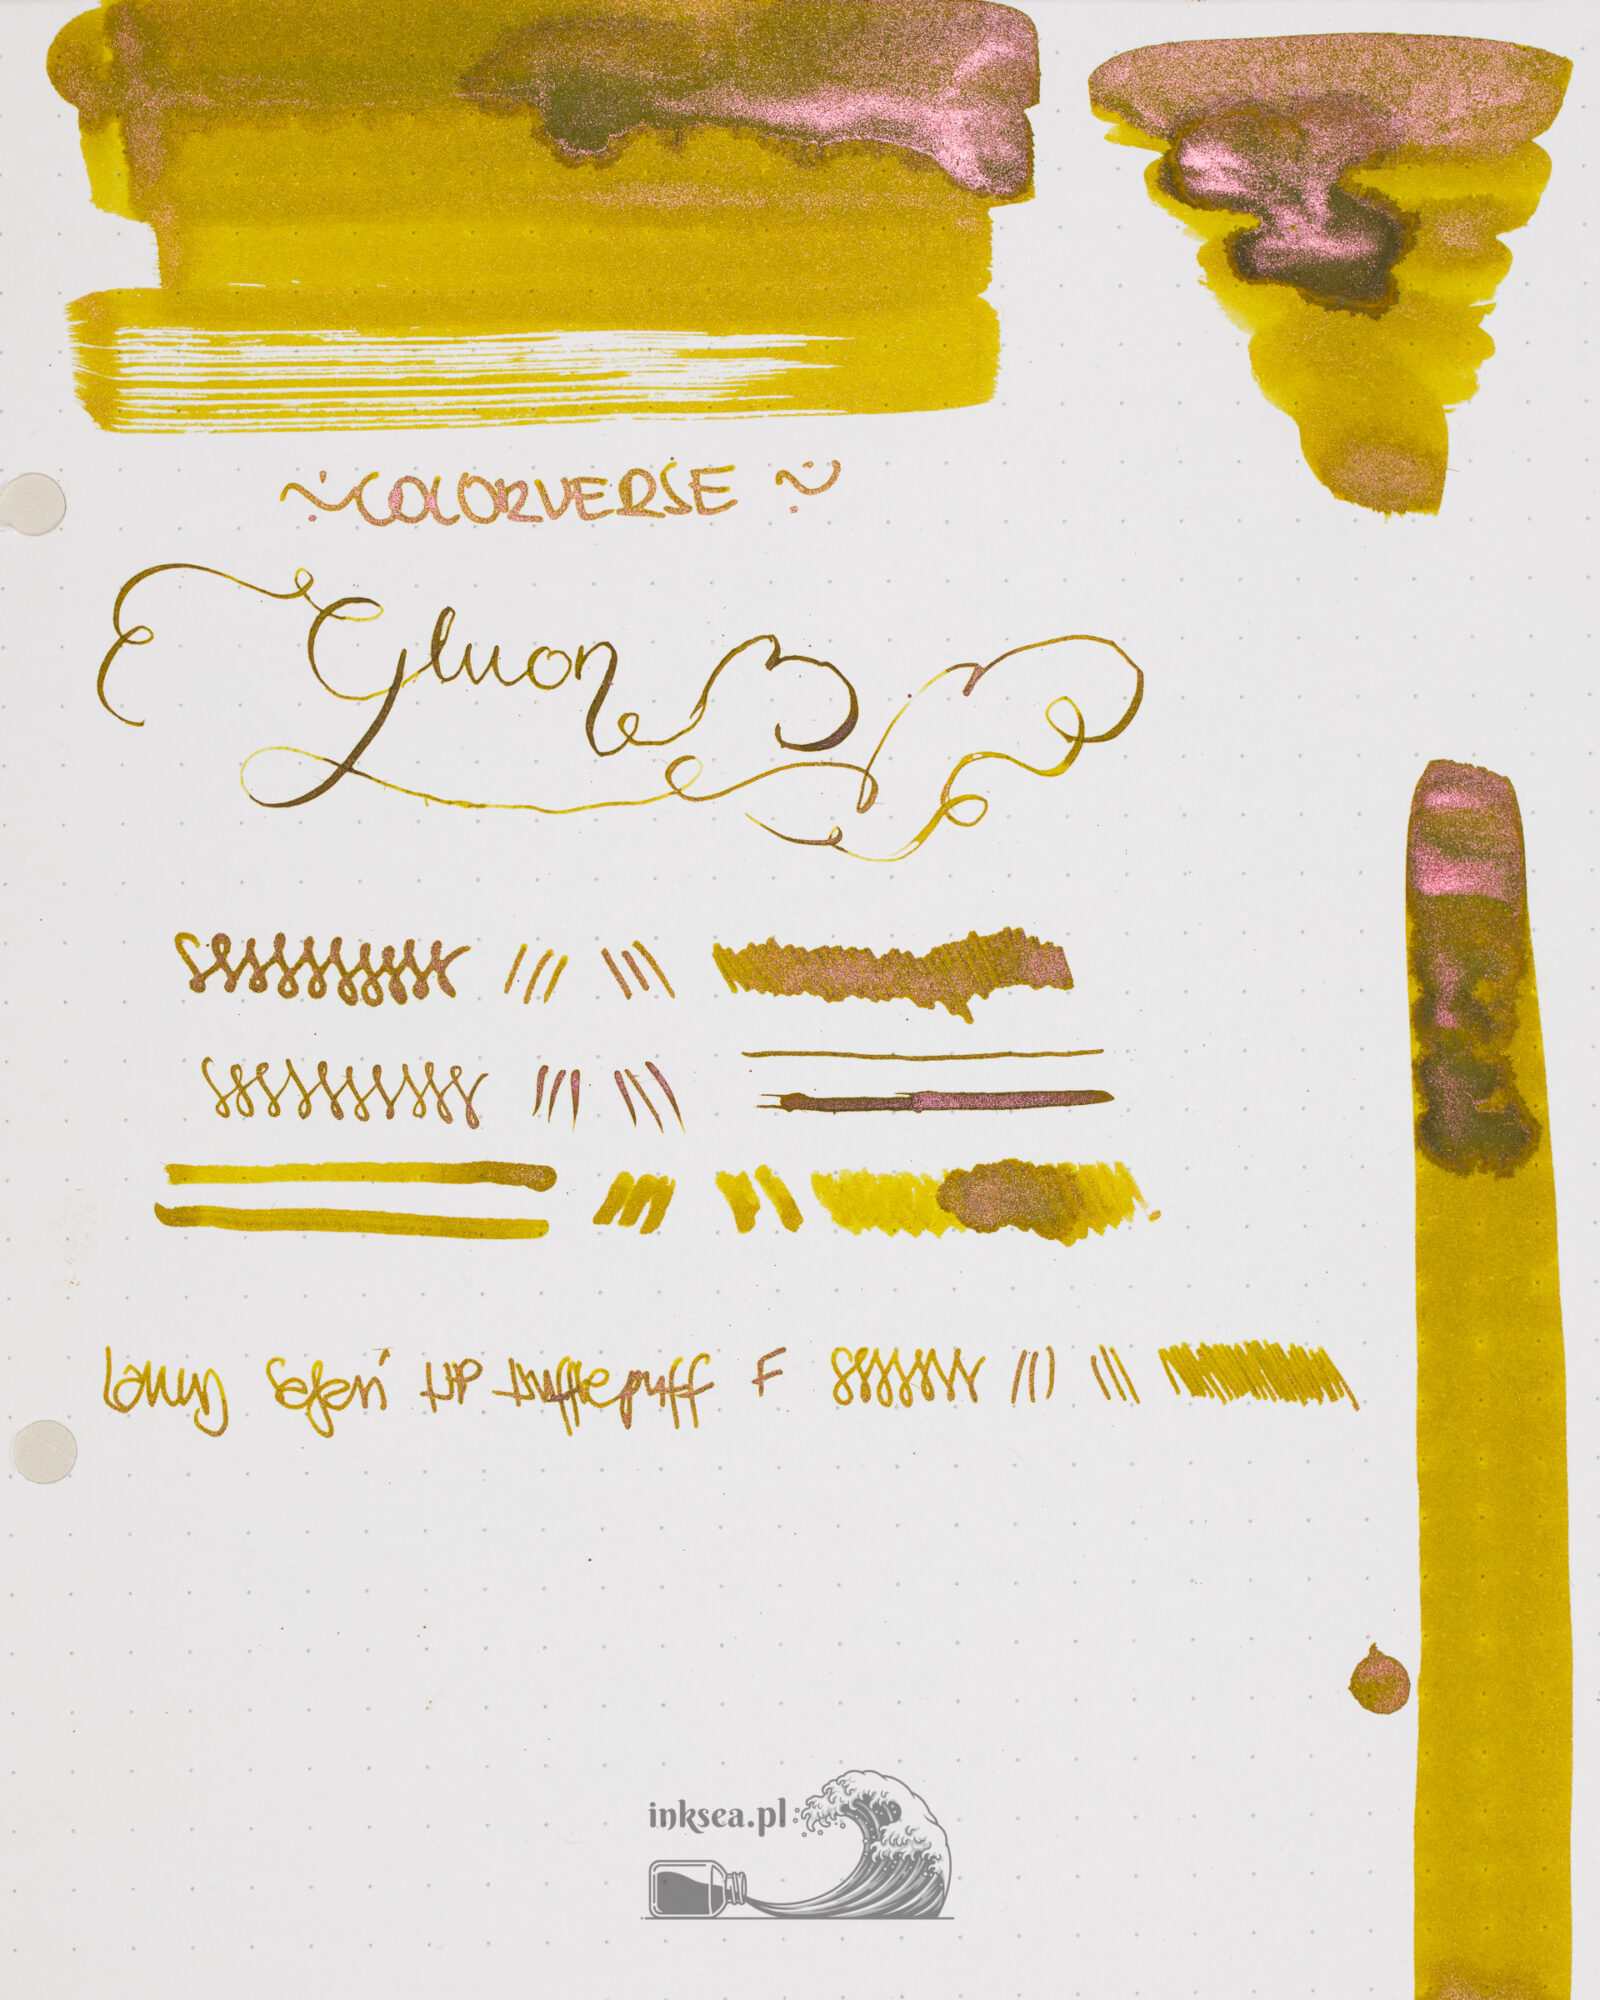 COLORVERSE
Gluon
Lamy Safari HP Hufflepuff F
inksea.pl